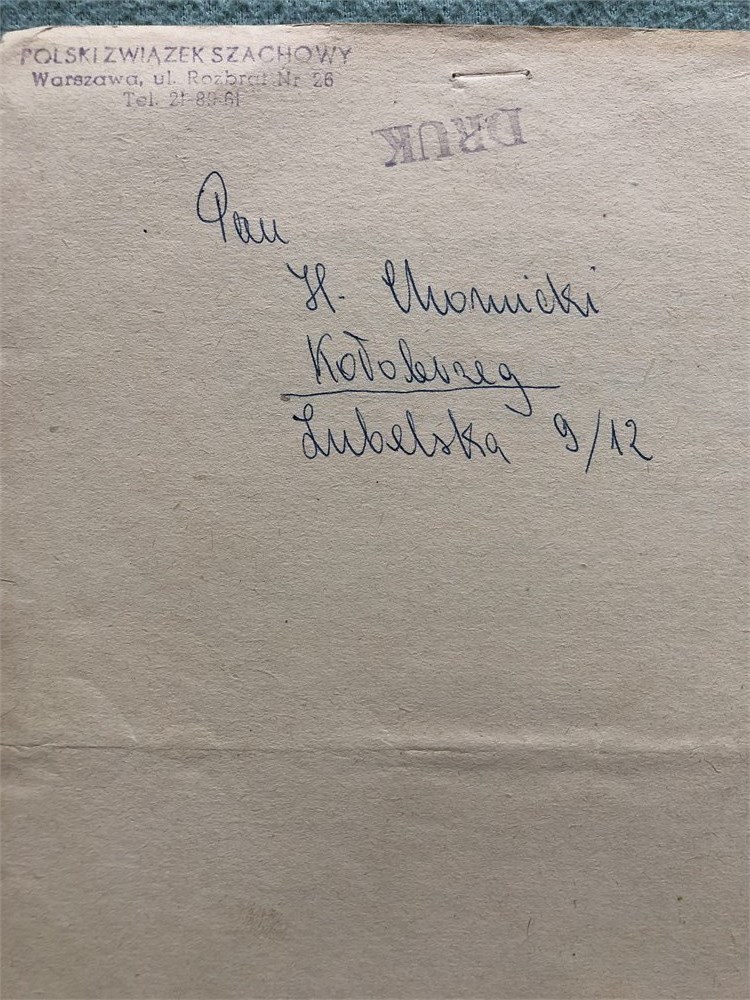 POLSKI ZWIĄZEK SZACHOWY
Warszawa, ul. Rozbrat Nr 26
Tel. 21-89-61
DRUK
Pan
H. Chornicki
Kołobrzeg
Lubelska 9/12